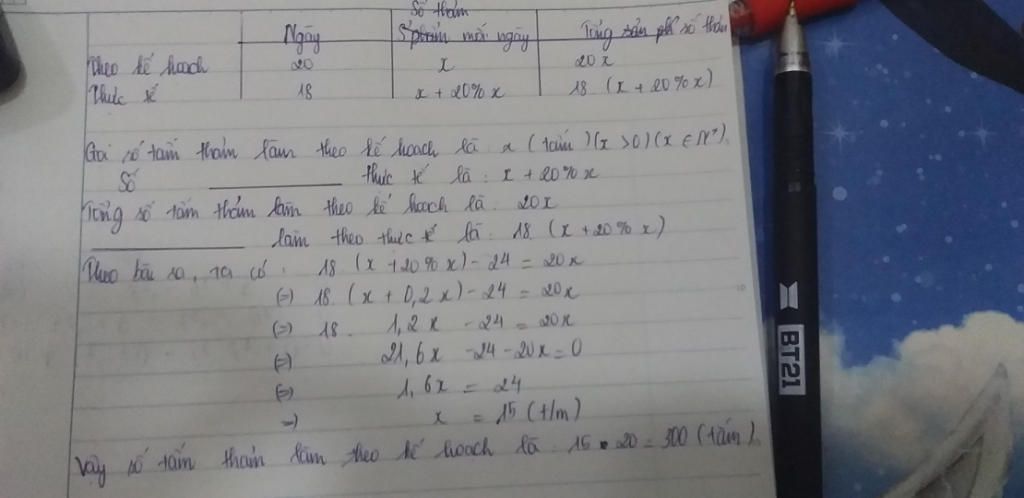 Số thảm
Ngày mỗi ngày Tổng số thảm
Theo kế hoạch 20 x 20x
Thực tế 18 x + 20% x 18 (x + 20% x)
Gọi số tấm thảm làm theo kế hoạch là x (tấm) (x > 0) (x ∈ N*).
Số ________ thực tế là : x + 20% x
Tổng số tấm thảm làm theo kế hoạch là : 20x
________ làm theo thực tế là : 18 (x + 20% x)
Theo bài ra, ta có : 18 (x + 20% x) - 24 = 20x
(=) 18 (x + 0,2x) - 24 = 20x
(=) 18 . 1,2x - 24 = 20x
(=) 21,6x - 24 - 20x = 0
(=) 1,6x = 24
=) x = 15 (t/m)
Vậy số tấm thảm làm theo kế hoạch là : 15 . 20 = 300 (tấm).
BT21